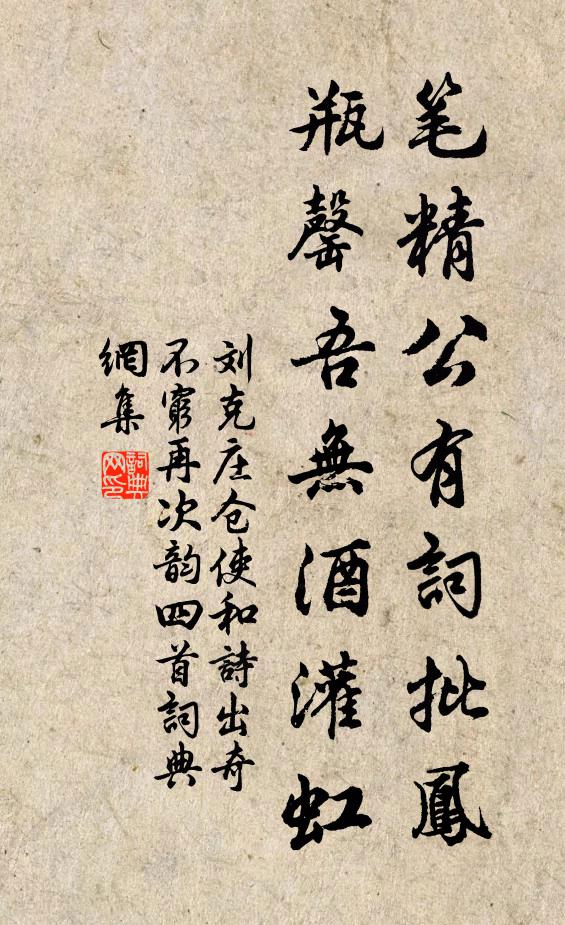 笔精公有詞批鳳
瓶罄吾無酒灌虹
刘克庄仓使和詩出奇
不窮再次韵四首詞典
網集
詞典
网印